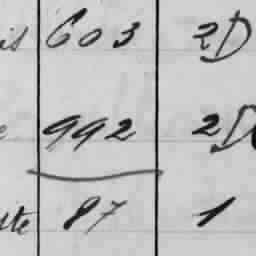 is 603 2D
e 992 2D
tte 87 1